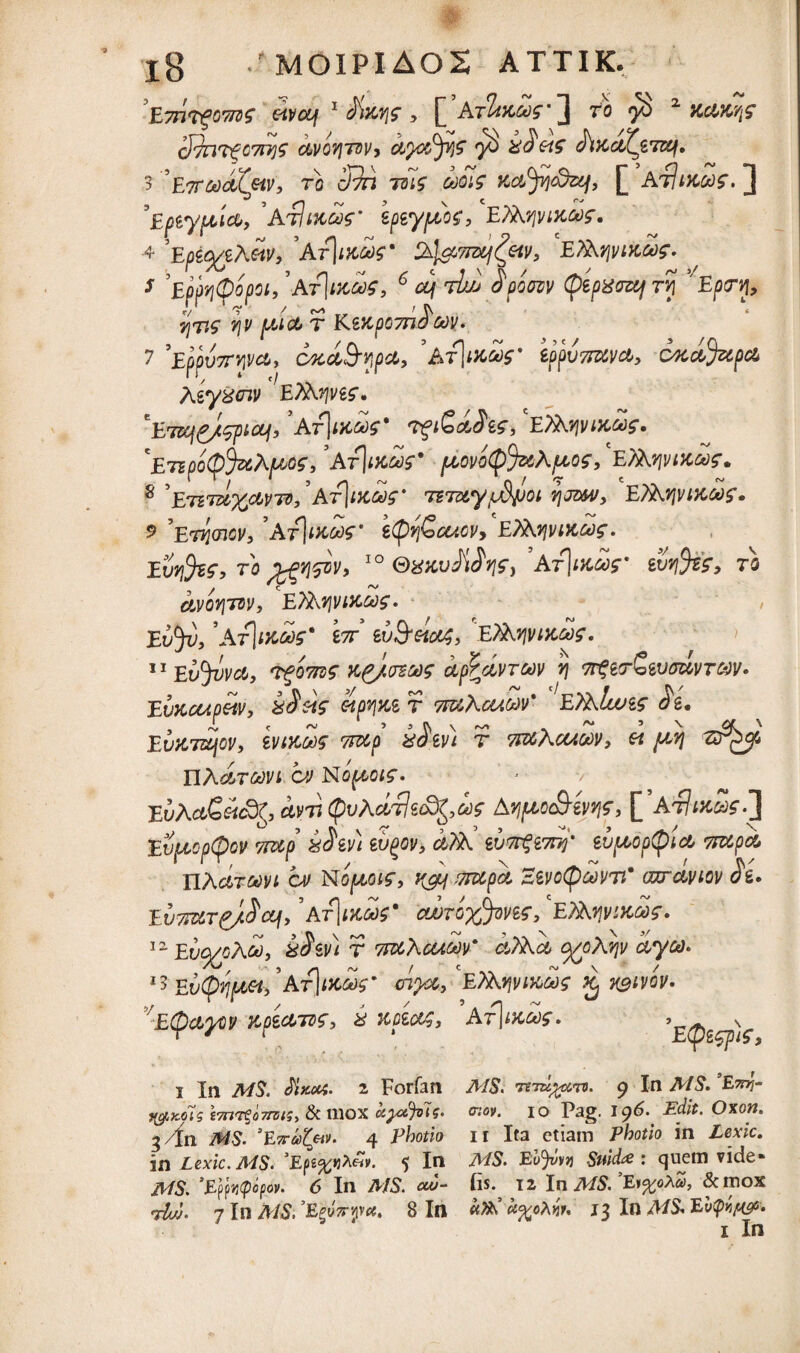 18 ΜΟΙΡΙΔΟΣ ΑΤΤΙΚ.
Ἐπίτροπος εἶναι ¹ δίκης, [Ἀττικῶς·] τὸ γὰρ ² κακῆς
ἐπιτροπῆς ἀνόητον, ἀγαθῆς γὰρ οὐδεὶς δικάζεται.
3 Ἐπωάζειν, τὸ ἐπὶ τοῖς ὠοῖς καθῆσθαι, [Ἀττικῶς.]
Ἐρεγμία, Ἀττικῶς· ἐρεγμός, Ἑλληνικῶς.
4 Ἐρεσχελεῖν, Ἀττικῶς· διαπαίζειν, Ἑλληνικῶς.
5 Ἐρρηφόροι, Ἀττικῶς, ⁶ αἱ τὴν δρόσον φέρουσαι τῇ Ἔρσῃ,
ἥτις ἦν μία τ Κεκροπιδῶν.
7 Ἐρρύπηνα, ἐκάθηρα, Ἀττικῶς· ἐρρύπανα, ἐκάθαρα
λέγουσιν Ἕλληνες.
Ἑταιρίστριαι, Ἀττικῶς· τριβάδες, Ἑλληνικῶς.
Ἑτερόφθαλμος, Ἀττικῶς· μονόφθαλμος, Ἑλληνικῶς.
8 Ἐτετάχαντο, Ἀττικῶς· τεταγμένοι ἦσαν, Ἑλληνικῶς.
9 Ἐτήσιον, Ἀττικῶς· ἐφήβαιον, Ἑλληνικῶς.
Εὔηθες, τὸ χρηστὸν, ¹⁰ Θουκυδίδης, Ἀττικῶς· εὔηθες, τὸ
ἀνόητον, Ἑλληνικῶς.
Εὐθύ, Ἀττικῶς· ἐπ' εὐθείας, Ἑλληνικῶς.
11 Εὐθύνα, τρόπος κρίσεως ἀρξάντων ἢ πρεσβευσάντων.
Εὐκαιρεῖν, οὐδεὶς εἴρηκε τ παλαιῶν· Ἕλληνες δέ.
Εὐκταῖον, ἑνικῶς παρ' οὐδενὶ τ παλαιῶν, εἰ μὴ παρὰ
Πλάτωνι ἐν Νόμοις.
Εὐλαβεῖσθαι, ἀντὶ φυλάττεσθαι, ὡς Δημοσθένης, [Ἀττικῶς.]
Εὔμορφον παρ' οὐδενὶ εὗρον, ἀλλ' εὐπρεπῆ· εὐμορφία παρὰ
Πλάτωνι ἐν Νόμοις, καὶ παρὰ Ξενοφῶντι· σπάνιον δέ.
Εὐπατρίδαι, Ἀττικῶς· αὐτόχθονες, Ἑλληνικῶς.
12 Εὐσχολῶ, οὐδενὶ τ παλαιῶν· ἀλλὰ σχολὴν ἄγω.
13 Εὐφήμει, Ἀττικῶς· σίγα, Ἑλληνικῶς καὶ κοινόν.
Ἔφαγον κρέατος, οὐ κρέας, Ἀττικῶς.
Ἐφεστρὶς,
1 In MS. δίκας. 2 Forſan
κακοῖς ἐπιτρόποις, & mox ἀγαθοῖς.
3 In MS. Ἐπώζειν. 4 Photio
in Lexic. MS. Ἐρεσχηλεῖν. 5 In
MS. Ἐρρηφόρον. 6 In MS. αὐ-
τὴν. 7 In MS. Ἐρύπηνα. 8 In
MS. τετάχατο. 9 In MS. Ἐπή-
σιον. 10 Pag. 196. Edit. Oxon.
11 Ita etiam Photio in Lexic.
MS. Εὐθύνη Suidæ: quem vide-
ſis. 12 In MS. Ἐνσχολῶ, & mox
ἀλλ' ἀσχολὴν. 13 In MS. Εὐφήμως.
1 In